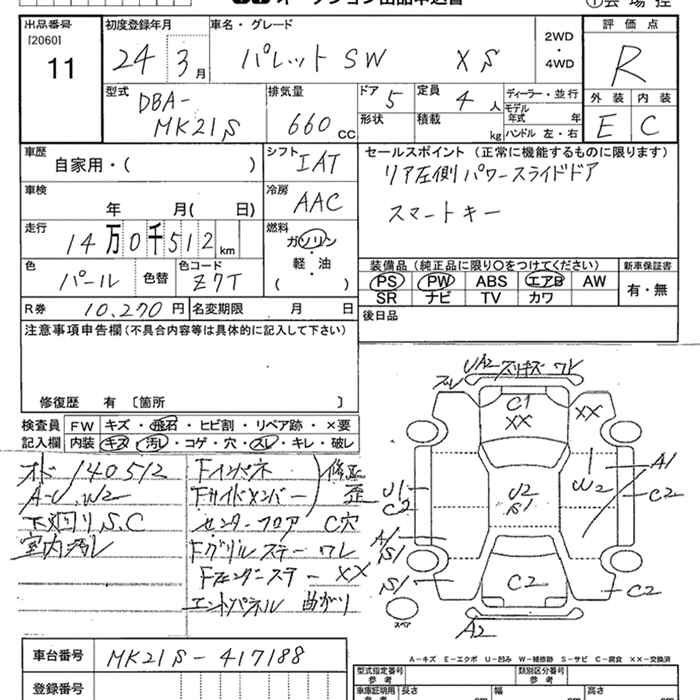 出品番号 [2060] 11
初度登録年月 24年 3月
車名・グレード パレット SW XS
2WD・4WD
評価点 R
外装 E 内装 C
型式 DBA-MK21S
排気量 660 CC
ドア 5 形状
定員 4人 積載 kg
ディーラー・並行
モデル年式 年
ハンドル 左・右
車歴 自家用・( )
シフト IAT
セールスポイント (正常に機能するものに限ります)
リア左側パワースライドドア
スマートキー
車検 年 月( 日)
冷房 AAC
走行 14万0千512km
燃料 ガソリン・軽・油 ( )
色 パール 色替 色コード Z7T
装備品 (純正品に限り○をつけてください)
PS PW ABS エアB AW
SR ナビ TV カワ
新車保証書 有・無
R券 10,270円 名変期限 月 日
後日品
注意事項申告欄 (不具合内容等は具体的に記入して下さい)
修復歴 有 〔箇所 〕
検査員記入欄
FW キズ・飛石・ヒビ割・リペア跡・×要
内装 キズ・汚レ・コゲ・穴・スレ・キレ・破レ
オド 140512
A-U.W2
下廻りS.C
室内汚レ
Fインパネ
Fサイドメンバー
修正歪
センターフロア C穴
Fグリルステー ワレ
Fフェンダーステー XX
エンドパネル 曲がり
UA2 スリキズ ワレ
C1
XX
XX
U1
C2
U2
S1
W2
A1
C2
A1
S1
S1
C2
C2
スペア
A2
A-キズ E-エクボ U-凹み W-補修跡 S-サビ C-腐食 XX-交換済
車台番号 MK21S-417188
登録番号
型式指定番号 参考
類別区分番号 参考
車庫証明用 参考
長さ
幅
高さ